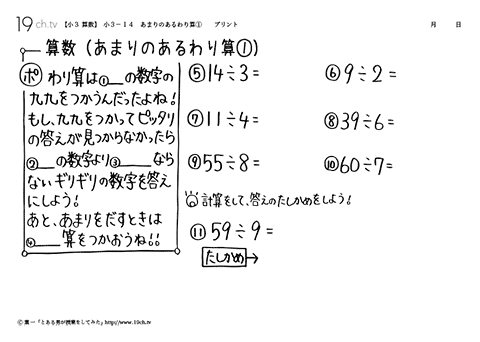 19ch.tv 【小3 算数】 小3－14 あまりのあるわり算① プリント 月 日
算数(あまりのあるわり算①)
ポ わり算は①__の数字の
九九をつかうんだったよね!
もし、九九をつかってピッタリ
の答えが見つからなかったら
②__の数字より③____なら
ないギリギリの数字を答え
にしよう!
あと、あまりをだすときは
④___算をつかおうね!!
⑤14÷3= ⑥9÷2=
⑦11÷4= ⑧39÷6=
⑨55÷8= ⑩60÷7=
計算をして、答えのたしかめをしよう!
⑪59÷9=
たしかめ→
© 葉一「とある男が授業をしてみた」http://www.19ch.tv